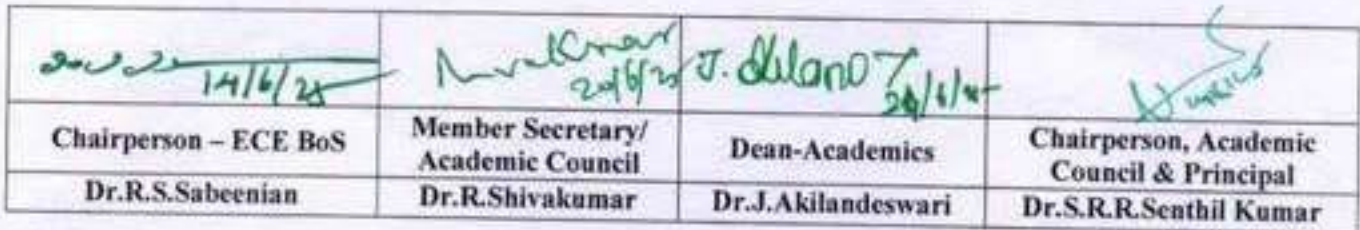 14/6/25
20/6/25
J. Akilan
Chairperson – ECE BoS
Member Secretary/
Academic Council
Dean-Academics
Chairperson, Academic
Council & Principal
Dr.R.S.Sabeenian
Dr.R.Shivakumar
Dr.J.Akilandeswari
Dr.S.R.R.Senthil Kumar